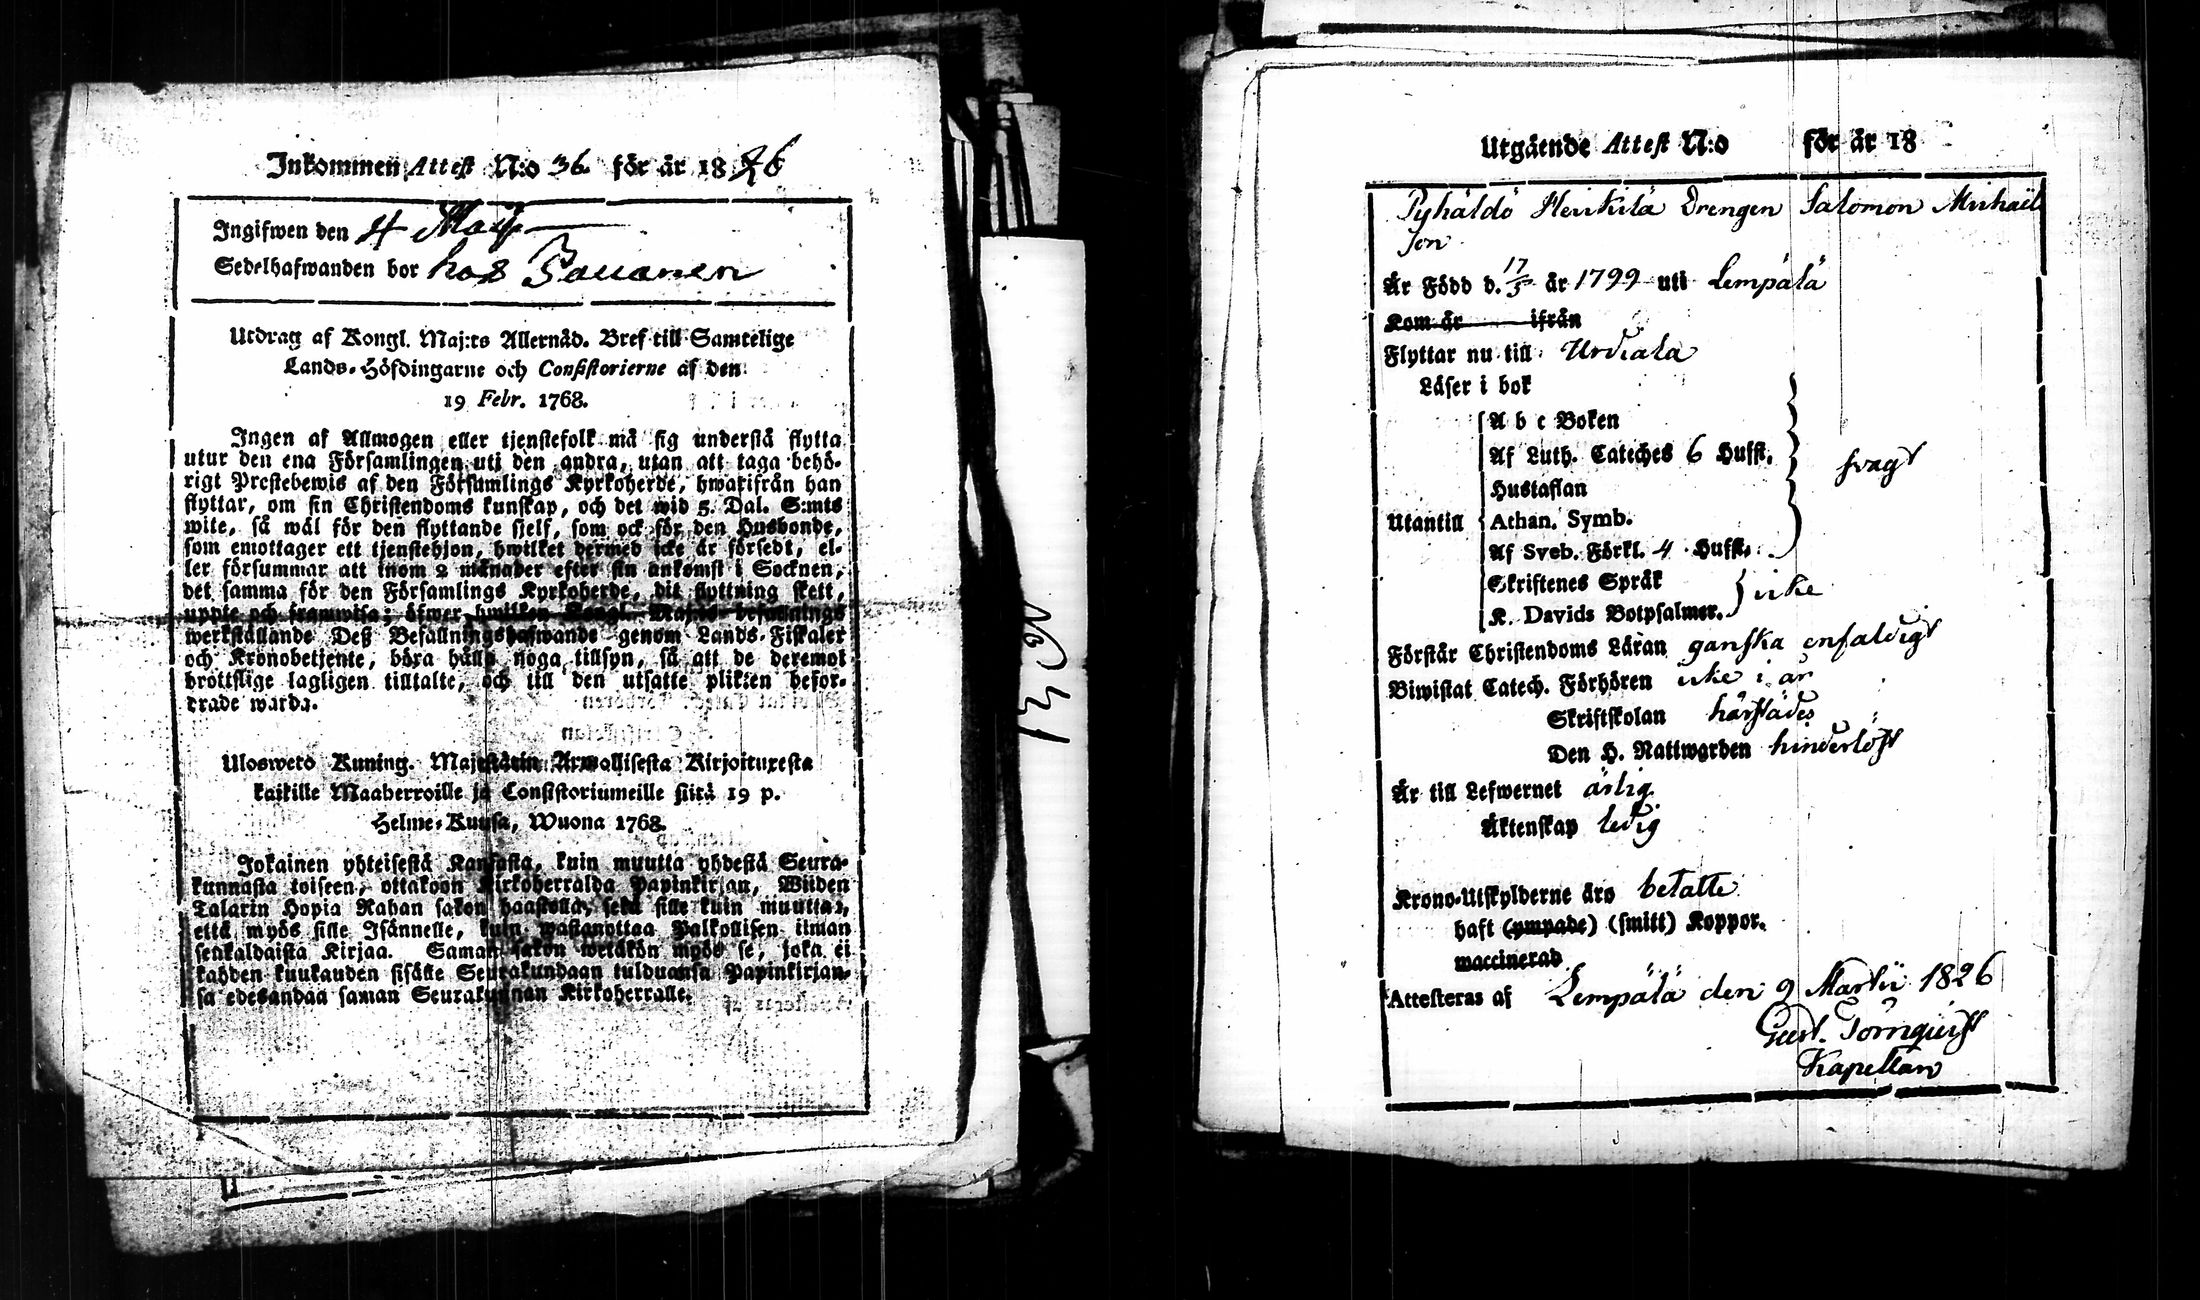 Inkommen Attest N:o 36. för år 1826
Ingifwen den 4 Maji
Sedelhafwanden bor hos Pauanen
Utdrag af Kongl. Maj:ts Allernåd. Bref till Samtelige
Lands-Höfdingarne och Consistorierne af den
19 Febr. 1768.
Ingen af Allmogen eller tjenstefolk må sig understå flytta
utur den ena Församlingen uti den andra, utan att taga behö-
rigt Prestebewis af den Församlings Kyrkoherde, hwarifrån han
flyttar, om sin Christendoms kunskap, och det wid 5. Dal. S:mts
wite, så wäl för den flyttande sjelf, som ock för den Husbonde,
som emottager ett tjenstehjon, hwilket dermed icke är försedt, el-
ler försummar att inom 2 månader efter sin ankomst i Socknen,
det samma för den Församlings Kyrkoherde, dit flyttning skett,
uppte och framwisa; öfwer hwilken Kongl. Maj:ts befallnings
werkställande Deß Befallningshafwande genom Lands-Fiskaler
och Kronobetjente, böra hålla noga tillsyn, så att de deremot
bröttslige lagligen tilltalte, och till den utsatte plikten befor-
drade warda.
Uloswetö Kuning. Majestätin Armollisesta Kirjoituxesta
kaikille Maaherroille ja Consistoriumeille siitä 19 p.
Helme-Kuusa, Wuona 1768.
Jokainen yhteisestä Kansasta, kuin muutta yhdestä Seura-
kunnasta toiseen, ottakoon Kirkoherralda Papinkirjan, Wiiden
Talarin Hopia Rahan sakon haastolla, sekä sille kuin muuttaa,
että myös sille Isännelle, kuin wastanottaa Palkollisen ilman
senkaldaista Kirjaa. Saman sakon wetäkön myös se, joka ei
kahden kuukauden sisälle Seurakundaan tulduansa Papinkirjan-
sa edesandaa saman Seurakunnan Kirkoherralle.
Utgående Attest N:o för år 18
Pyhäldö Heikilä Drengen Salomon Michaels
son
Är Född d. 17/5 år 1799 uti Lempälä
Kom år ifrån
Flyttar nu till Urdiala
Läser i bok
A b c Boken
Af Luth. Cateches 6 Hufst.
Hustaflan
svagt
Utantill Athan. Symb.
Af Sveb. Förkl. 4 Hufst.
Skriftenes Språk
K. Davids Botpsalmer. icke
Förstår Christendoms Läran ganska enfaldigt
Biwistat Catech. Förhören icke i år
Skriftskolan härstädes
Den H. Nattwarden hinderlöst
Är till Lefwernet ärlig
Äktenskap ledig
Krono-Utskylderne äro betalte
haft (ympade) (smitt) Koppor.
waccinerad
Attesteras af Lempälä den 9 Martii 1826
Gust. Törnqvist
Kapellan